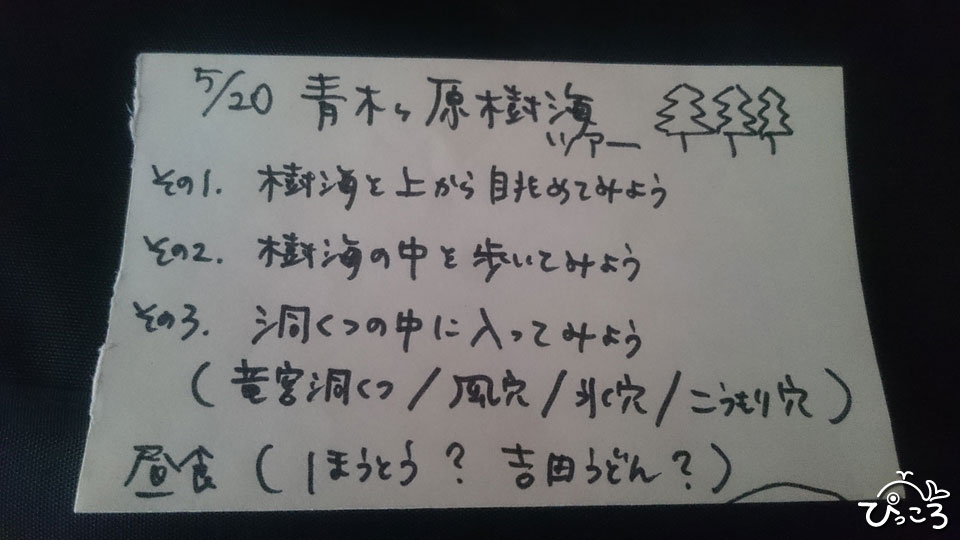 5/20 青木ヶ原樹海
ツアー
その1. 樹海を上から眺めてみよう
その2. 樹海の中を歩いてみよう
その3. 洞くつの中に入ってみよう
(竜宮洞くつ/風穴/氷穴/こうもり穴)
昼食(ほうとう? 吉田うどん?)
ぴっころ